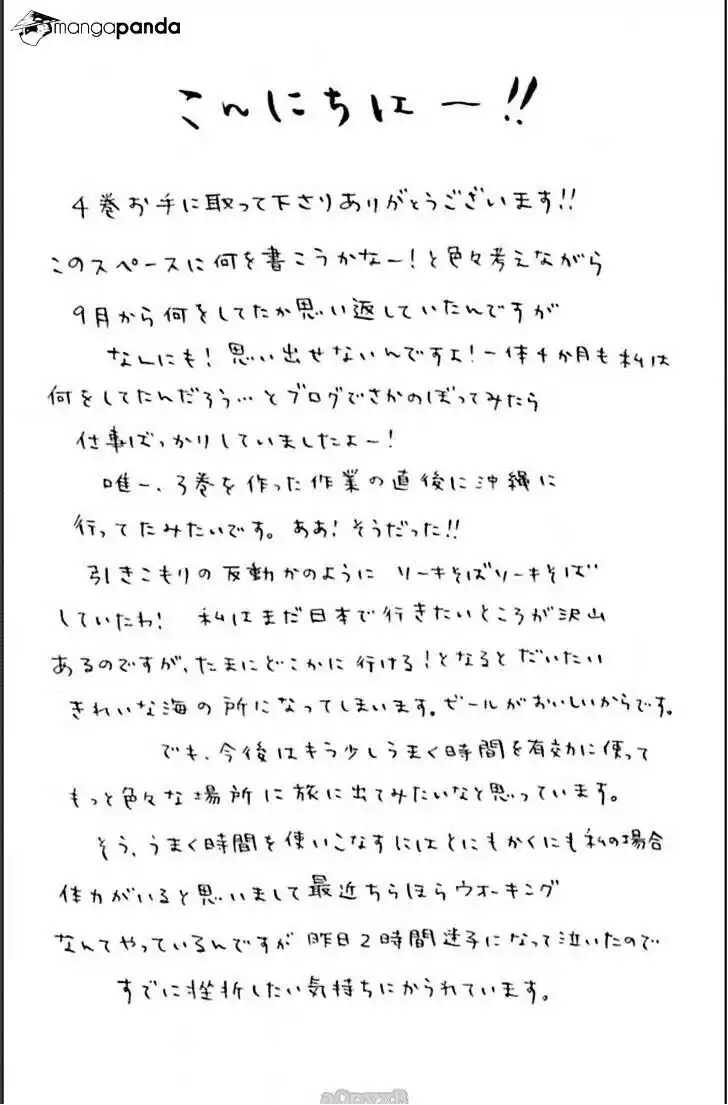 mangapanda
こんにちはー!!
4巻お手に取って下さりありがとうございます!!
このスペースに何を書こうかなー!と色々考えながら
9月から何をしてたか思い返していたんですが
なんにも!思い出せないんですよ!一体4か月も私は
何をしてたんだろう…とブログでさかのぼってみたら
仕事ばっかりしていましたよー!
唯一、3巻を作った作業の直後に沖縄に
行ってたみたいです。ああ!そうだった!!
引きこもりの反動かのように ソーキそばソーキそば
していたわ! 私はまだ日本で行きたいところが沢山
あるのですが、たまにどこかに行ける!となるとだいたい
きれいな海の所になってしまいます。ビールがおいしいからです。
でも、今後はもう少しうまく時間を有効に使って
もっと色々な場所に旅に出てみたいなと思っています。
そう、うまく時間を使いこなすにはとにもかくにも私の場合
体力がいると思いまして最近ちらほらウォーキング
なんてやっているんですが昨日2時間迷子になって泣いたので
すでに挫折したい気持ちにかられています。